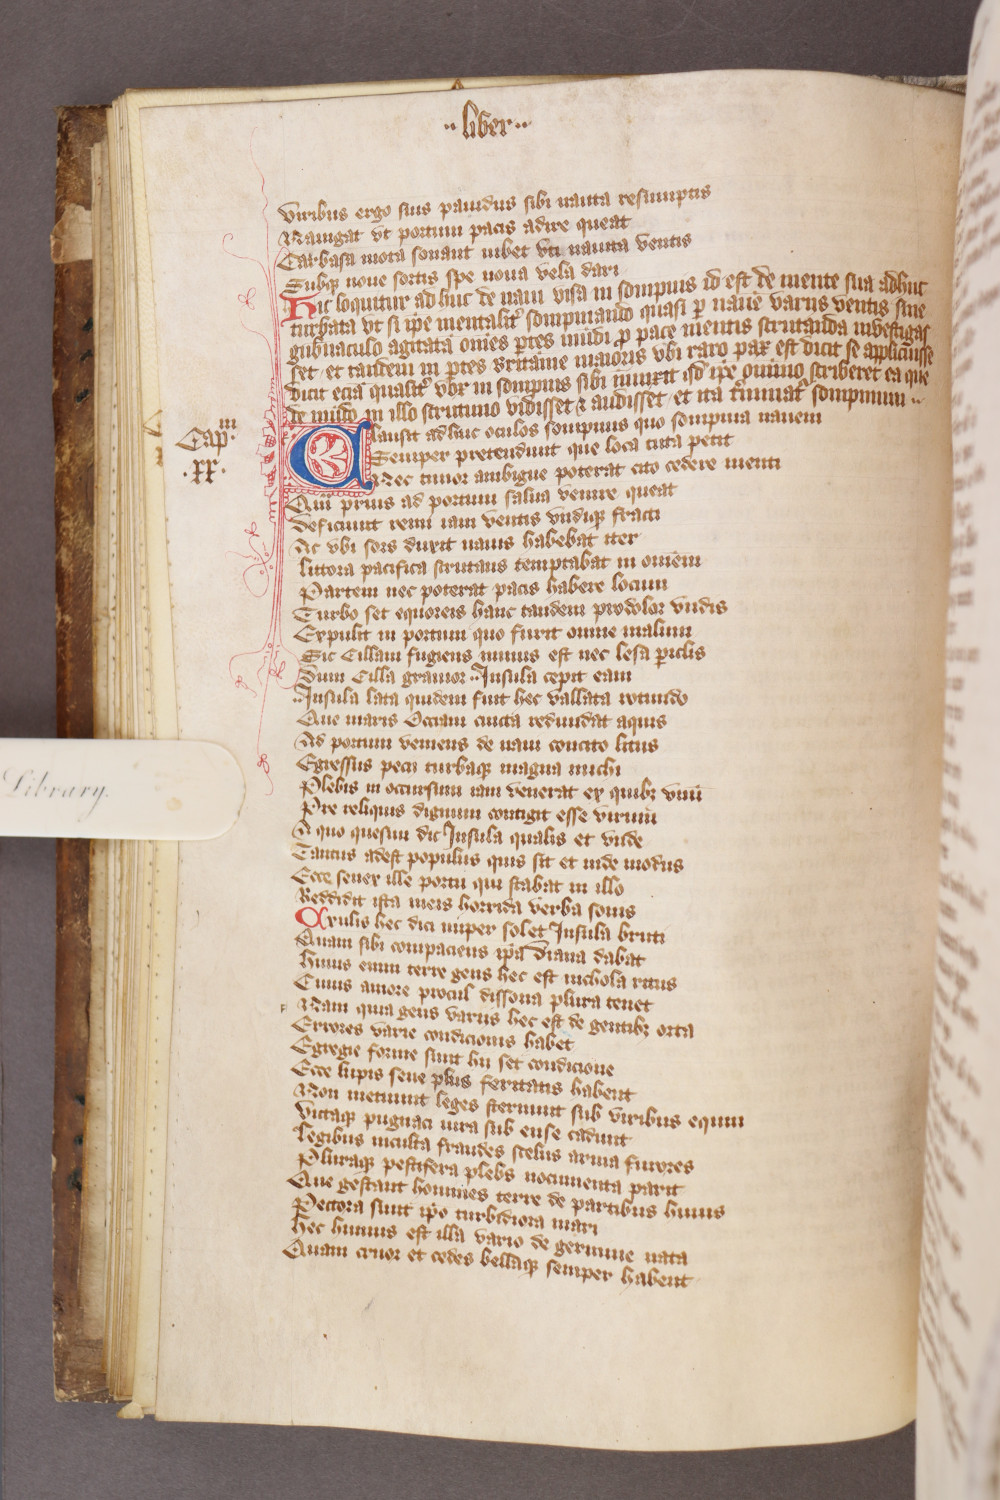 ·· liber ··
Viribus ergo suis pauidus sibi nauta resumptis
Nauigat vt portum pacis adire queat
Carbasa mota sonant iubet vti nauita ventis
Subqꝫ noue sortis spe noua vela dari
Hic loquitur adhuc de naui visa in sompnis id est de mente sua adhuc
turbata vt si ip̄e mentalit̉ sompniando quasi ꝑ nauē variis ventis sine
gub̉naculo agitatā om̄es ꝑtes mūdi ꝓ pace mentis scrutanda inuestigas
set et tandem in ꝑtes Britānie maioris vbi raro pax est dicit se applicuisse
dicit eciā qualit̉ vox in sompnis sibi iniunxit qd̄ ip̄e om̄ino scriberet ea que
de mūdo in illo scrutinio vidisset ⁊ audisset et ita t̉minat̉ sompnium ··
Cap.m
·xx·
Clausit adhuc oculos sompnus quo sompnia nauem
Semper pretendunt que loca tuta petit
Nec timor ambigue poterat cito cedere menti
Qui prius ad portum salua venire queat
Deficiunt remi iam ventis vndiqꝫ fracti
Ac vbi sors duxit nauis habebat iter
Littora pacifica scrutans temptabat in omnem
Partem nec poterat pacis habere locum
Turbo set equoreis hanc tandem prodolor vndis
Expulit in portum quo furit omne malum
Sic Cillam fugiens minus est nec lesa ꝑiclis
Dum Cilla grauior ·Insula cepit eam
·Insula lata quidem fuit hec vallata rotundo
Que maris Occiani cincta redundat aquis
Ad portum veniens de naui concito litus
Egressus pecii turbaqꝫ magna michi
Plebis in occursum iam venerat ex quibꝫ vnum
Pre reliquis dignum contigit esse virum
A quo quesiui dic Insula qualis et vnde
Tantus adest populus quis sit et inde modus
Ecce senex ille portu qui stabat in illo
Reddidit ista meis horrida verba sonis
Exulis hec dici nuper solet Insula bruti
Quam sibi compaciens ip̄a Diana dabat
Huius enim terre gens hec est inchola ritus
Cuius amore procul dissona plura tenet
Nam quia gens variis hec est de gentibꝫ orta
Errores varie condicionis habet
Egregie forme sunt hii set condicione
Ecce lupis seue plus feritatis habent
Non metuunt leges sternunt sub viribus equum
Victaqꝫ pugnaci iura sub ense cadunt
Legibus inculta fraudes scelus arma furores
Pluraqꝫ pestifera plebs nocumenta parit
Que gestant homines terre de partibus huius
Pectora sunt ip̄o turbidiora mari
Hec humus est illa vario de germine nata
Quam cruor et cedes bellaqꝫ semper habent
Library.